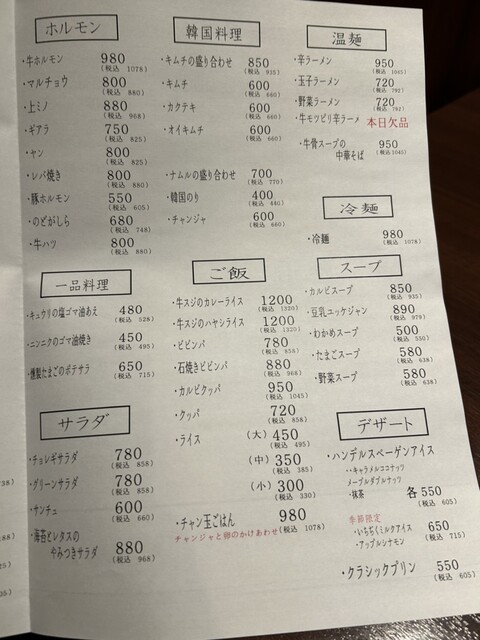 ホルモン
・牛ホルモン 980
(税込 1078)
・マルチョウ 800
(税込 880)
・上ミノ 880
(税込 968)
・ギアラ 750
(税込 825)
・ヤン 800
(税込 825)
・レバ焼き 800
(税込 880)
・豚ホルモン 550
(税込 605)
・のどがしら 680
(税込 748)
・牛ハツ 800
(税込 880)
一品料理
・キュウリの塩ゴマ油あえ 480
(税込 528)
・ニンニクのゴマ油焼き 450
(税込 495)
・燻製たまごのポテサラ 650
(税込 715)
サラダ
・チョレギサラダ 780
(税込 858)
・グリーンサラダ 780
(税込 858)
・サンチュ 600
(税込 660)
・海苔とレタスの
やみつきサラダ 880
(税込 968)
韓国料理
・キムチの盛り合わせ 850
(税込 935)
・キムチ 600
(税込 660)
・カクテキ 600
(税込 660)
・オイキムチ 600
(税込 660)
・ナムルの盛り合わせ 700
(税込 770)
・韓国のり 400
(税込 440)
・チャンジャ 600
(税込 660)
ご飯
・牛スジのカレーライス 1200
(税込 1320)
・牛スジのハヤシライス 1200
(税込 1320)
・ビビンバ 780
(税込 858)
・石焼きビビンバ 880
(税込 968)
・カルビクッパ 950
(税込 1045)
・クッパ 720
(税込 858)
・ライス (大) 450
(税込 495)
(中) 350
(税込 385)
(小) 300
(税込 330)
・チャン玉ごはん 980
(税込 1078)
チャンジャと卵のかけあわせ
温麺
・辛ラーメン 950
(税込 1045)
・玉子ラーメン 720
(税込 792)
・野菜ラーメン 720
(税込 792)
・牛モツピリ辛ラーメン 本日欠品
・牛骨スープの
中華そば 950
(税込 1045)
冷麺
・冷麺 980
(税込 1078)
スープ
・カルビスープ 850
(税込 935)
・豆乳ユッケジャン 890
(税込 979)
・わかめスープ 500
(税込 550)
・たまごスープ 580
(税込 638)
・野菜スープ 580
(税込 638)
デザート
・ハンデルスベーゲンアイス
・・キャラメルココナッツ
メープルダブルナッツ
・抹茶 各550
(税込 605)
季節限定
・いちぢくミルクアイス 650
(税込 715)
・アップルシナモン
・クラシックプリン 550
(税込 605)